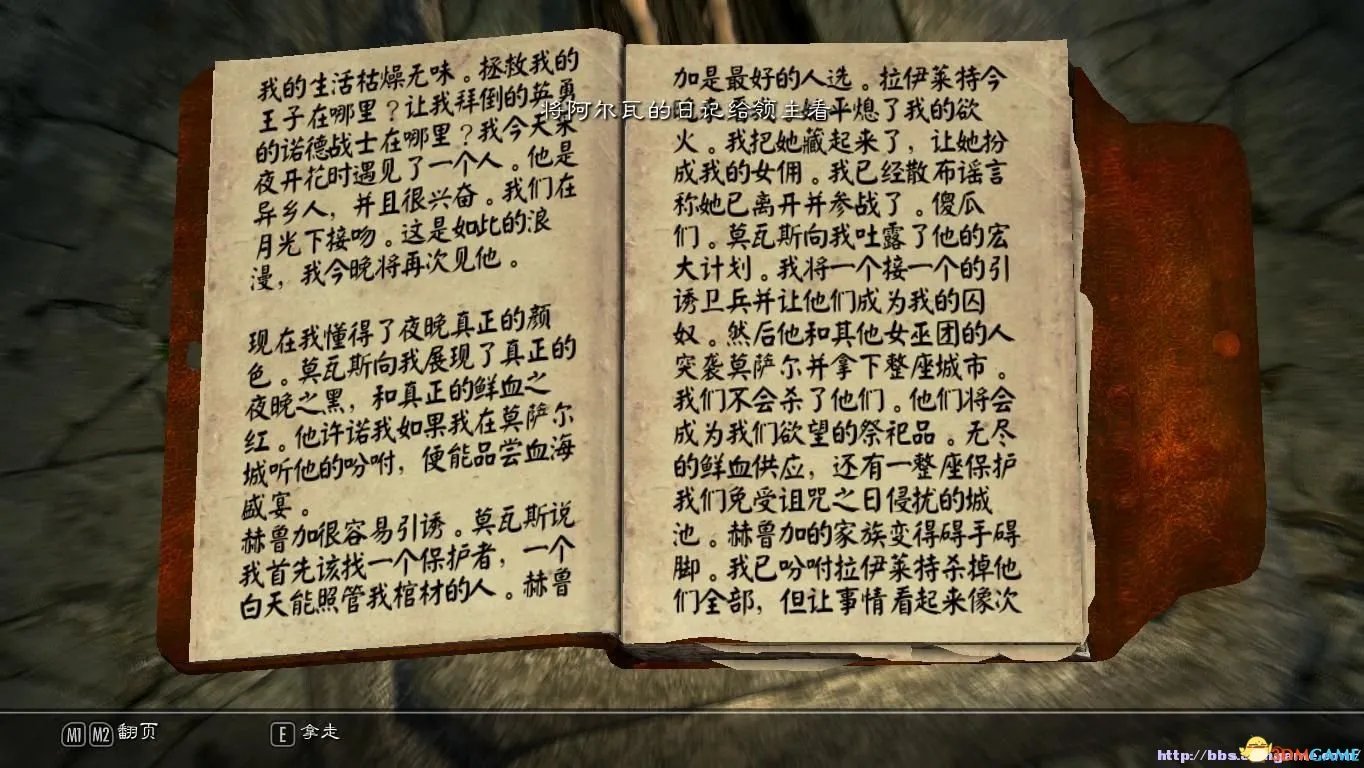 我的生活枯燥无味。拯救我的
王子在哪里？让我拜倒的英勇
的诺德战士在哪里？我今天深
夜开花时遇见了一个人。他是
异乡人，并且很兴奋。我们在
月光下接吻。这是如此的浪
漫，我今晚将再次见他。
现在我懂得了夜晚真正的颜
色。莫瓦斯向我展现了真正的
夜晚之黑，和真正的鲜血之
红。他许诺我如果我在莫萨尔
城听他的吩咐，便能品尝血海
盛宴。
赫鲁加很容易引诱。莫瓦斯说
我首先该找一个保护者，一个
白天能照管我棺材的人。赫鲁
加是最好的人选。拉伊莱特今
平熄了我的欲
火。我把她藏起来了，让她扮
成我的女佣。我已经散布谣言
称她已离开并参战了。傻瓜
们。莫瓦斯向我吐露了他的宏
大计划。我将一个接一个的引
诱卫兵并让他们成为我的囚
奴。然后他和其他女巫团的人
突袭莫萨尔并拿下整座城市。
我们不会杀了他们。他们将会
成为我们欲望的祭祀品。无尽
的鲜血供应，还有一整座保护
我们免受诅咒之日侵扰的城
池。赫鲁加的家族变得碍手碍
脚。我已吩咐拉伊莱特杀掉他
们全部，但让事情看起来像次
将阿尔瓦的日记给领主看
M1 M2 翻页
E 拿走
http://bbs.
3DMGAME